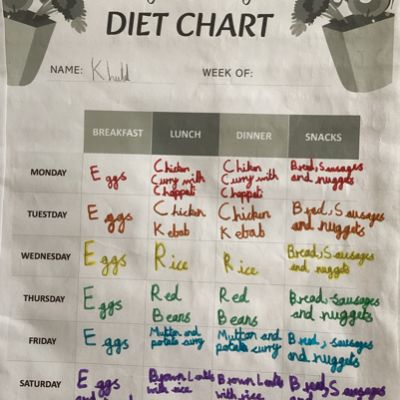 DIET CHART
NAME: Khuld WEEK OF:
BREAKFAST LUNCH DINNER SNACKS
MONDAY
Eggs
Chicken
Curry with
Chappati
Chiken
Curry with
Chappati
Bread, Sausages
and nuggets
TUESDAY
Eggs
Chicken
Kebab
Chicken
Kebab
Bread, Sausages
and nuggets
WEDNESDAY
Eggs
Rice
Rice
Bread, Sausages
and nuggets
THURSDAY
Eggs
Red
Beans
Red
Beans
Bread, Sausages
and nuggets
FRIDAY
Eggs
Mutton and
potato curry
Mutton and
potato curry
Bread, Sausages
and nuggets
SATURDAY
Eggs
Brown
with rice
Brown
with rice
Bread, Sausages
and nuggets